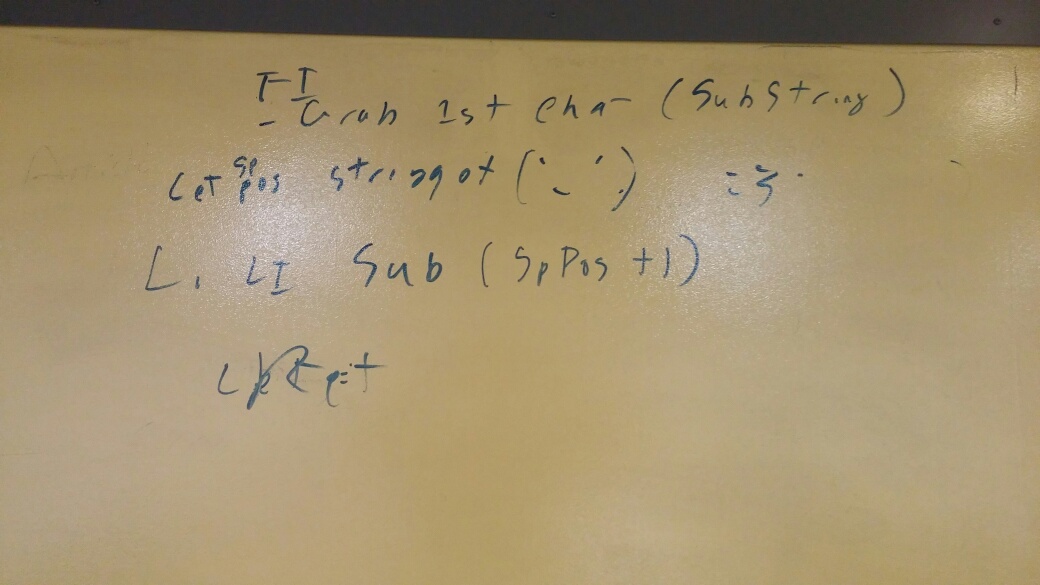 FI
- Grab 1st char (Substring)
Let sp pos string of ('_')
L. LI Sub (SpPos +1)